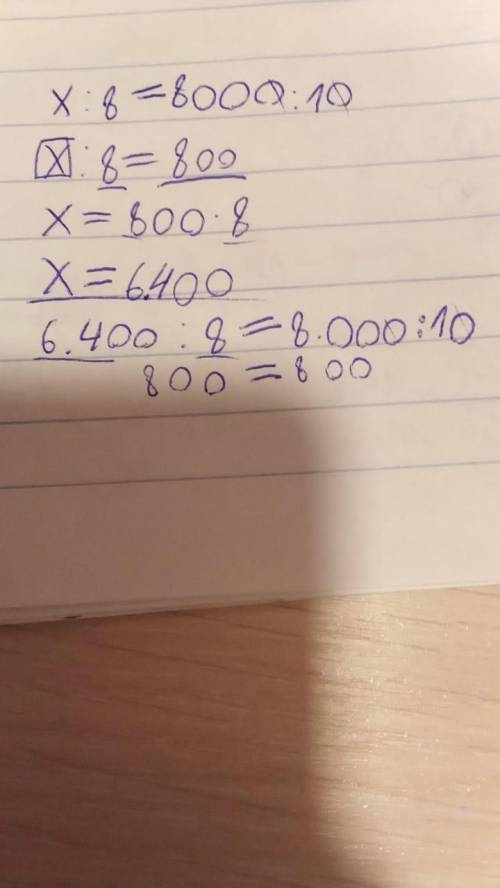 x : 8 = 8000 : 10
x : 8 = 800
x = 800 · 8
x = 6.400
6.400 : 8 = 8.000 : 10
800 = 800